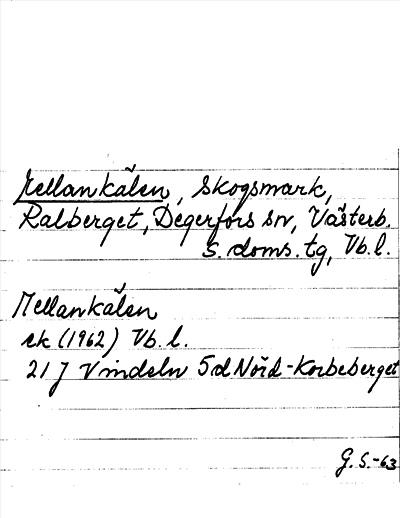 Mellankälen, skogsmark,
Ralberget, Degerfors sn, Västerb.
s. doms. tg, Vb. l.
Mellankälen
ek (1962) Vb. l.
21 J Vindeln 5d Nord-Korbeberget
G. S. -63